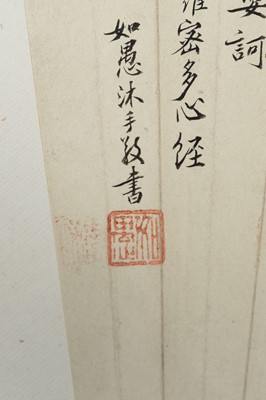 婆訶
羅蜜多心経
如愚沐手敬書
如愚